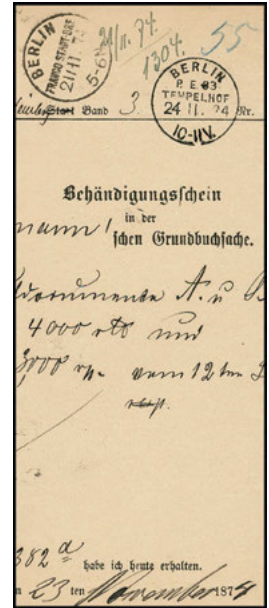 BERLIN
FRANCO STADT-BRF
21/11
5-6
21/11. 74.
1304.
55
BERLIN
P. E. 83
TEMPELHOF
24 11. 74
10-11V.
Band 3. Nr.
Behändigungsschein
in der
mann'schen Grundbuchsache.
A. u
4000 rtl und
3,000 vom 12ten
382 d habe ich heute erhalten.
23 ten November 1874